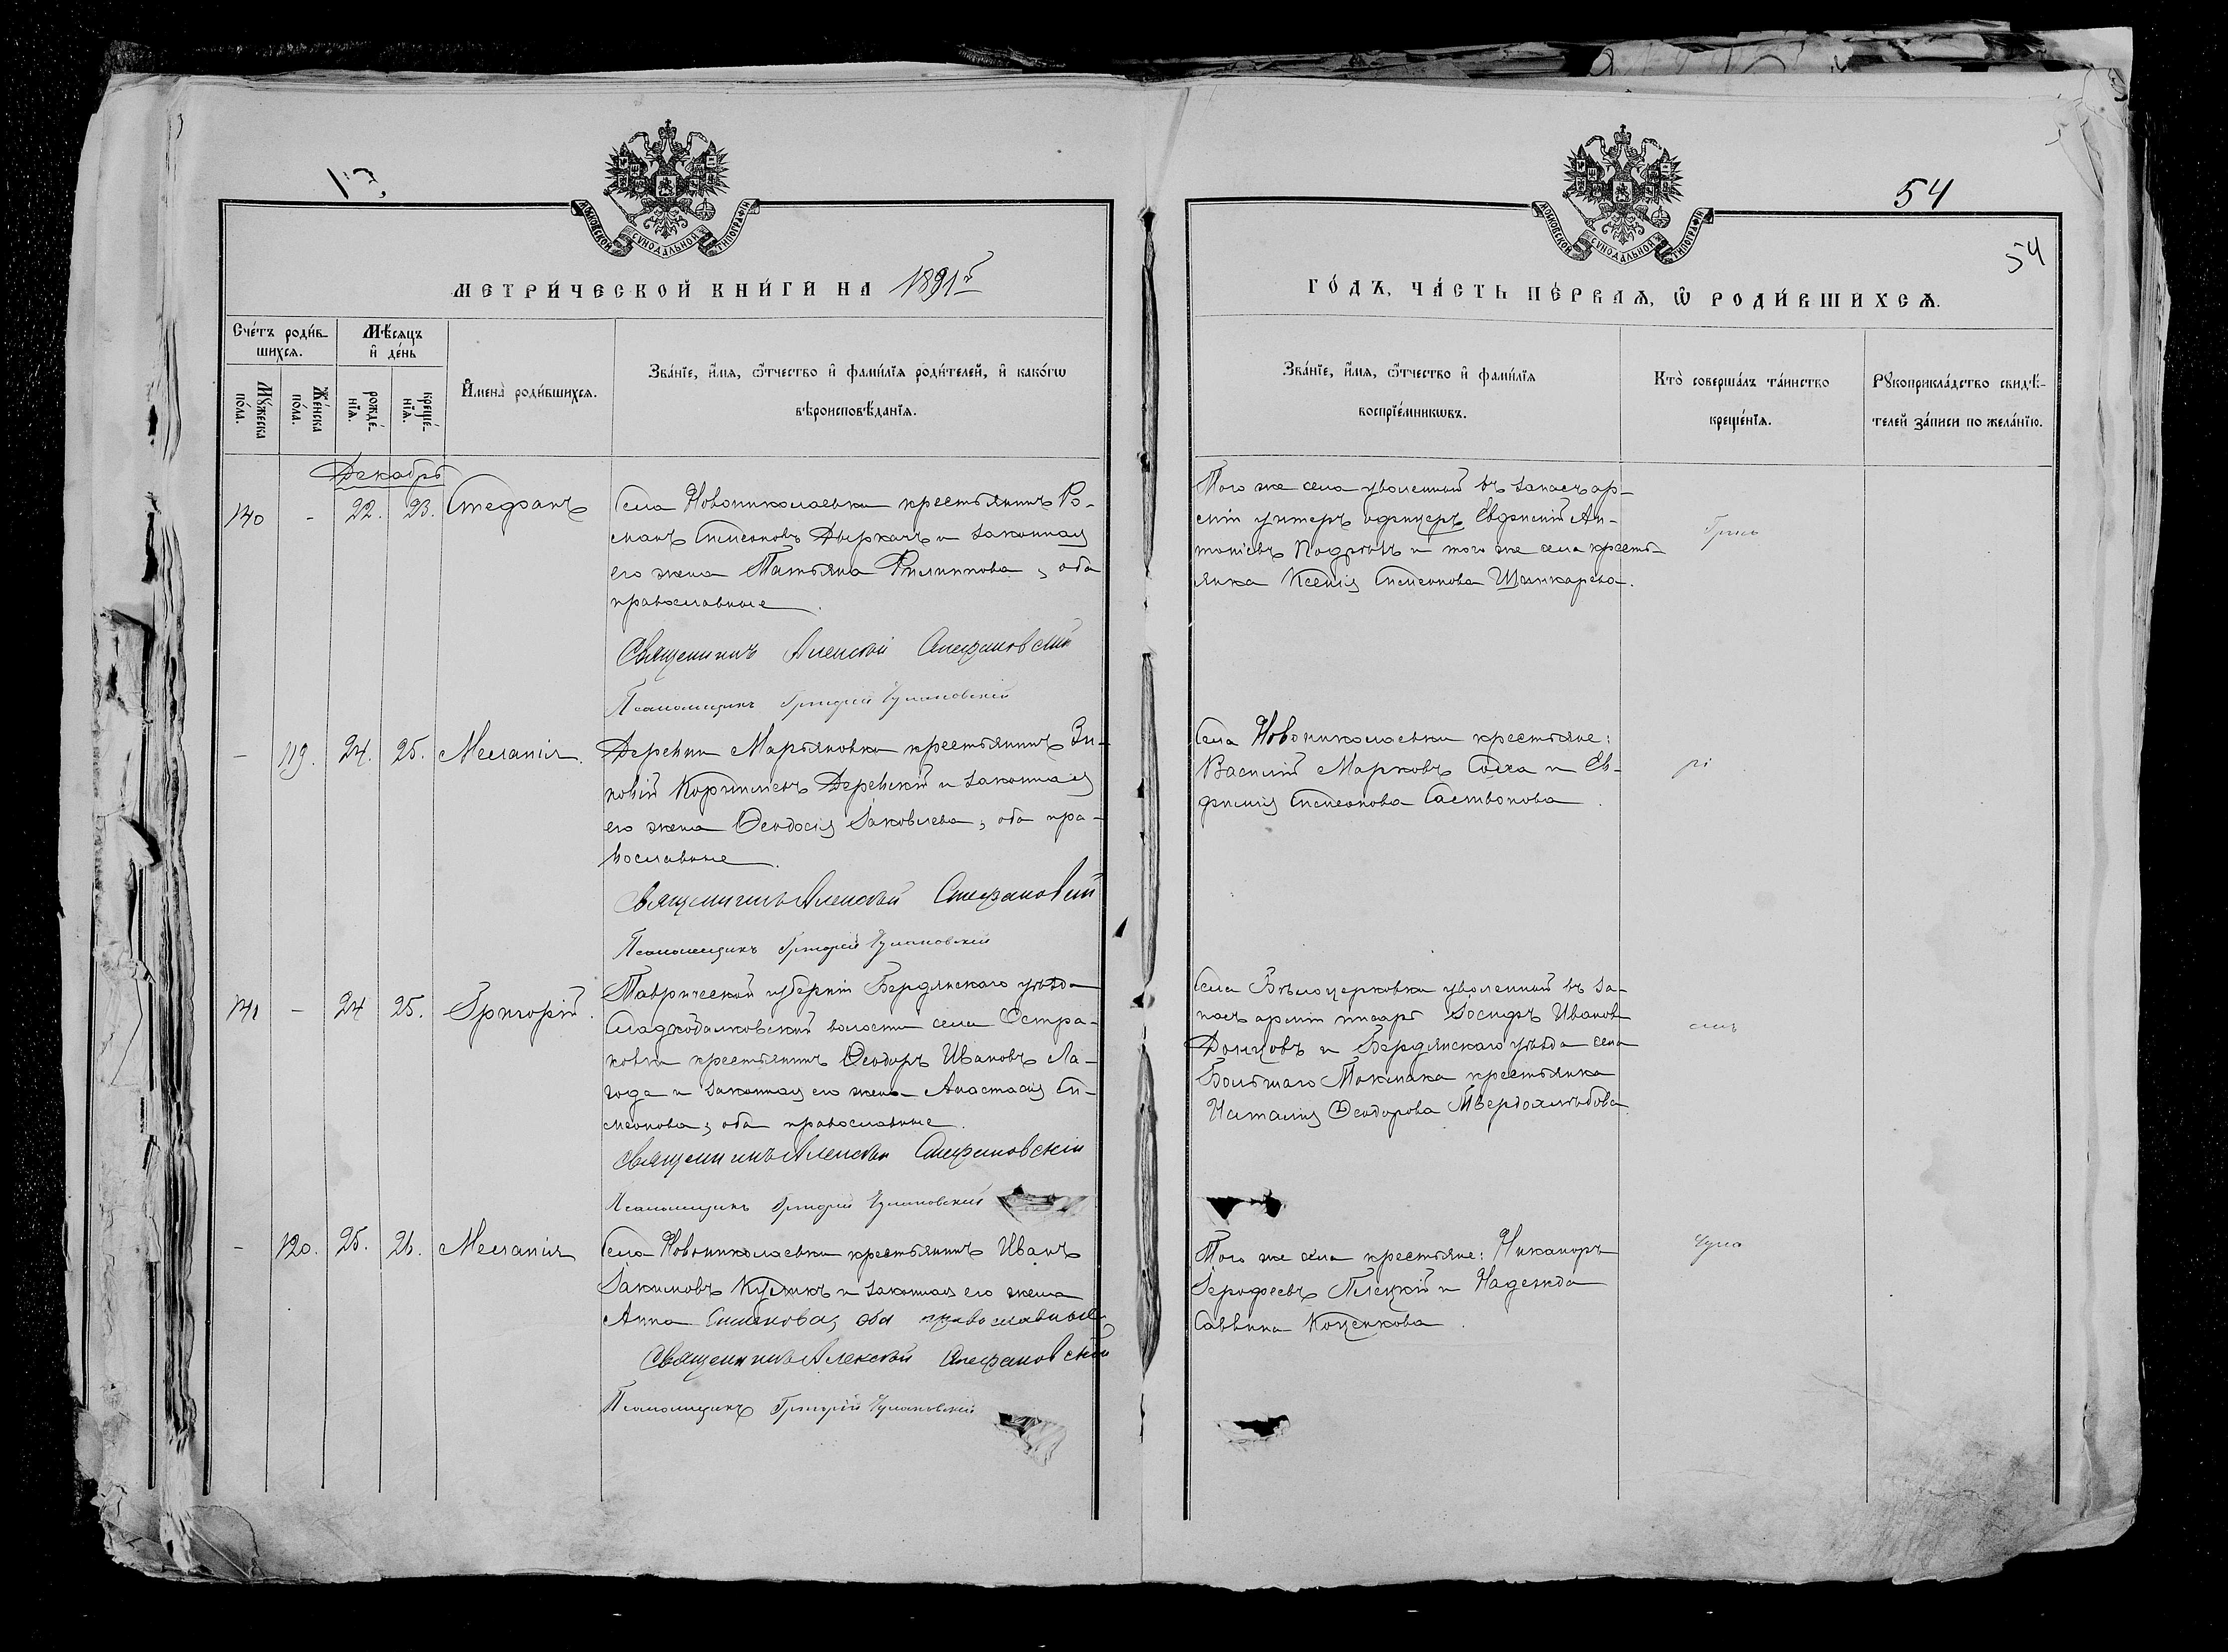 МОСКОВСКОЙ СУНОДАЛЬНОЙ ТИПОГРАФІИ
МЕТРИ́ЧЕСКОЙ КНИ́ГИ НА 1891 г
Сче́тъ роди́в-
шихсѧ.
Мѣ́сяцъ
и҆ де́нь
Му́жеска
по́ла.
Же́нска
по́ла.
рожде́-
нїѧ.
креще́-
нїѧ.
И҆мена̀ роди́вшихсѧ.
Зва́нїе, и҆́мѧ, ѻ҆́тчество и҆ фамі́лїѧ роди́телей, и҆ како́гѡ
вѣроисповѣ́данїѧ.
Декабрь
140 - 22. 23. Стефанъ
Села Новониколаевки крестьянинъ Ро-
манъ Симеоновъ Дыркачъ и законная
его жена Татьяна Филиппова, оба
православные.
Священникъ Алексій Стефановскій
Псаломщикъ Григорій Чулановскій
- 119. 24. 25. Меланія.
Деревни Марьяновки крестьянинъ Зи-
новій Корниліевъ Деревскій и законная
его жена Ѳеодосія Іаковлева, оба пра-
вославные.
Священникъ Алексій Стефановскій
Псаломщикъ Григорій Чулановскій
141 - 24 25. Григорій.
Таврической губерніи Бердянскаго уѣзда
волости села Остри-
ковки крестьянинъ Ѳеодоръ Ивановъ Ла-
года и законная его жена Анастасія Си-
меонова, оба православные.
Священникъ Алексій Стефановскій
Псаломщикъ Григорій Чулановскій
- 120. 25. 26. Меланія
Села Новониколаевки крестьянинъ Иванъ
Іакимовъ и законная его жена
Анна Симеонова, оба православные
Священникъ Алексій Стефановскій
Псаломщикъ Григорій Чулановскій
54
54
МОСКОВСКОЙ СУНОДАЛЬНОЙ ТИПОГРАФІИ
ГО́ДЪ, ЧА́СТЬ ПЕ́РВАѦ, Ѡ҆ РОДИ́ВШИХСѦ.
Зва́нїе, и҆́мѧ, ѻ҆́тчество и҆ фамі́лїѧ
воспрїе́мникѡвъ.
Кто̀ соверша́лъ та́инство
креще́нїѧ.
Рꙋкоприкла́дство свидѣ́-
телей за́писи по жела́нїю.
Того же села уволенный въ запасъ ар-
міи унтеръ офицеръ Евфимій Ан-
тоніевъ и того же села кресть-
янка Ксенія Симеонова Шинкарева.
Села Новониколаевки крестьяне:
Василій Марковъ Сома и Ев-
фимія Симеонова
Села Бѣлоцерковки уволенный въ за-
пасъ арміи писарь Іосифъ Ивановъ
Донцовъ и Бердянскаго уѣзда села
Большаго Токмака крестьянка
Наталія Ѳеодорова Твердохлѣбова
Того же села крестьяне: Никаноръ
Іероѳеевъ Плецкій и Надежда
Саввина Коценкова.